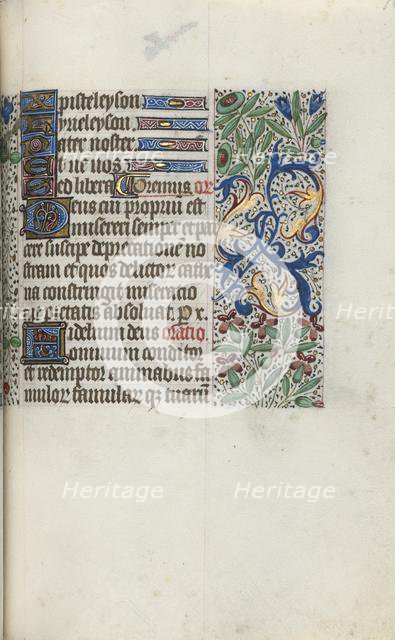 Xpisteleyson
Kyrieleyson
Pater noster
Et ne nos
Sed libera Oremus or
Deus cui proprium est
misereri semper et par
cere suscipe deprecatione no
stram et quos delictor cathe
na constringit miseratio
pietatis absoluat. P x.
Fidelium deus oratio
omnium conditor
et redemptor animabus fa
mulor famular qz tuarum
Heritage Heritage
Heritage Heritage
Heritage Heritage